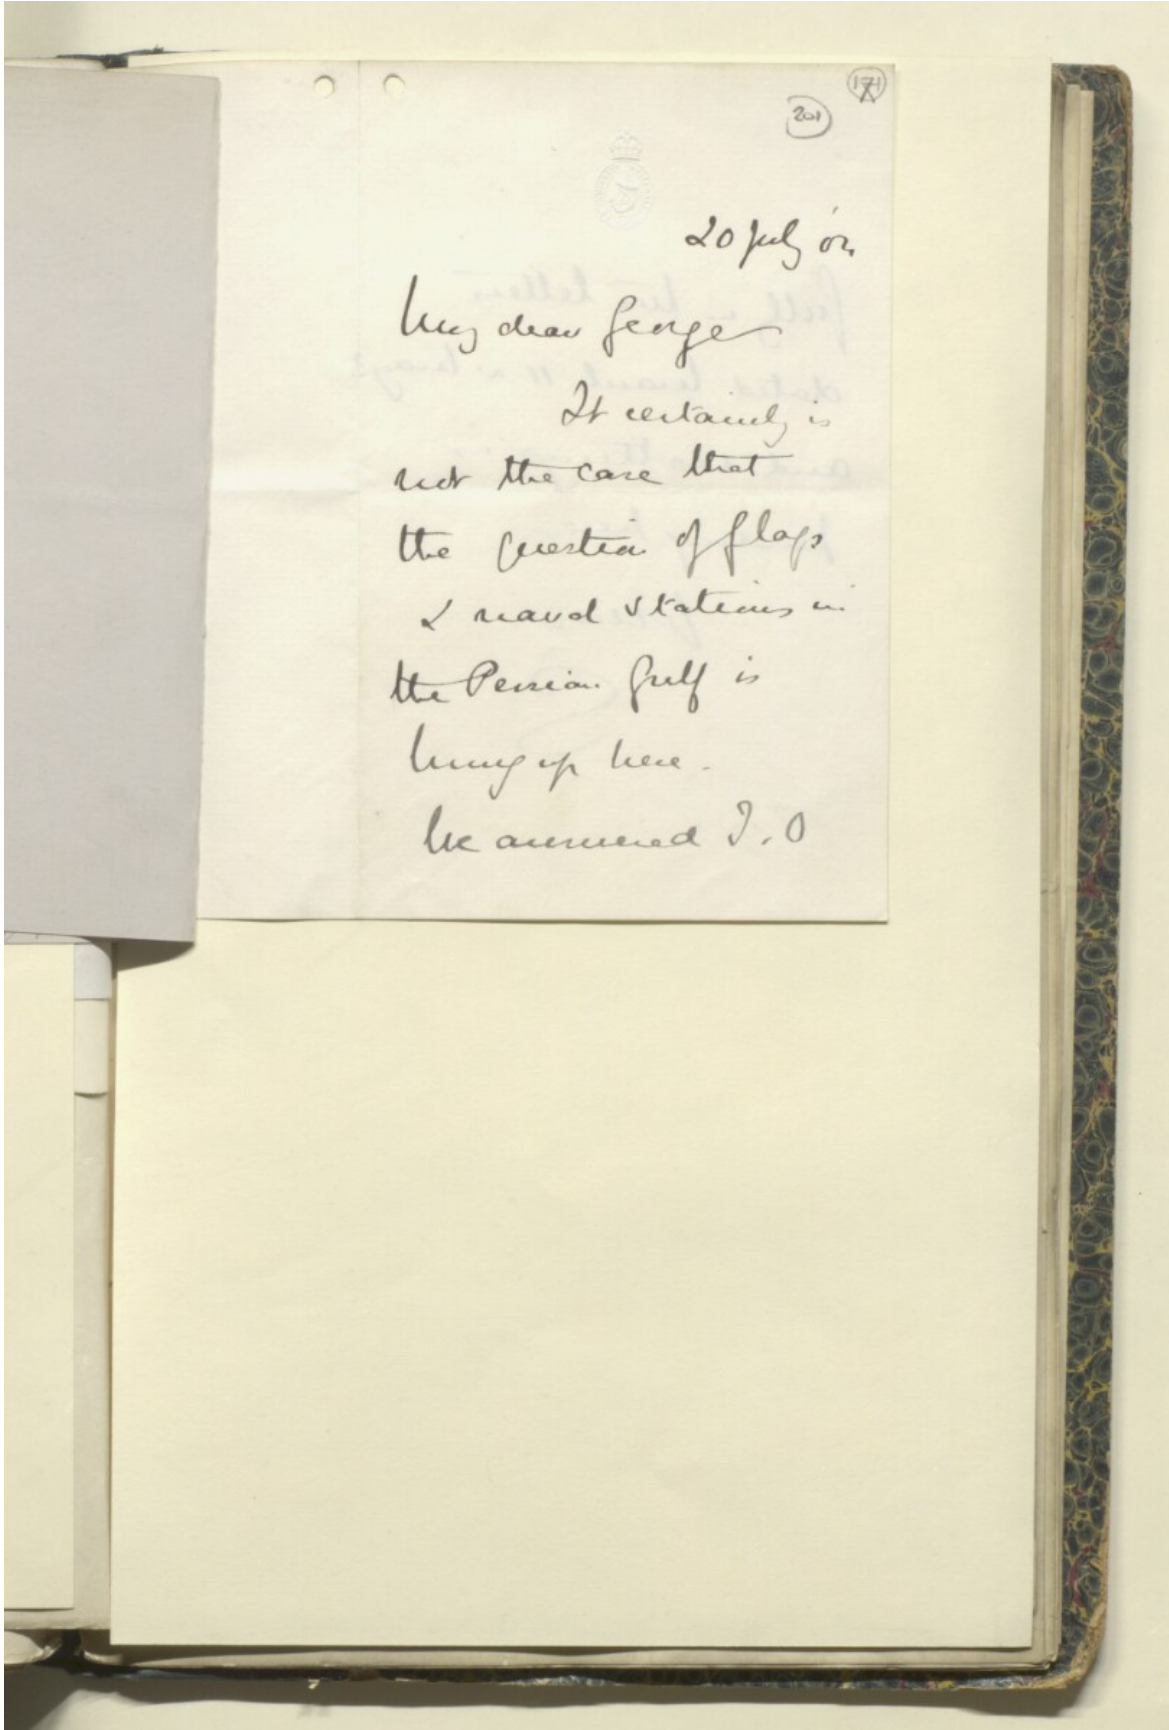 171
201
20 July '02
My dear George
It certainly is
not the case that
the question of flags
& naval stations in
the Persian Gulf is
hung up here.
We answered I.O